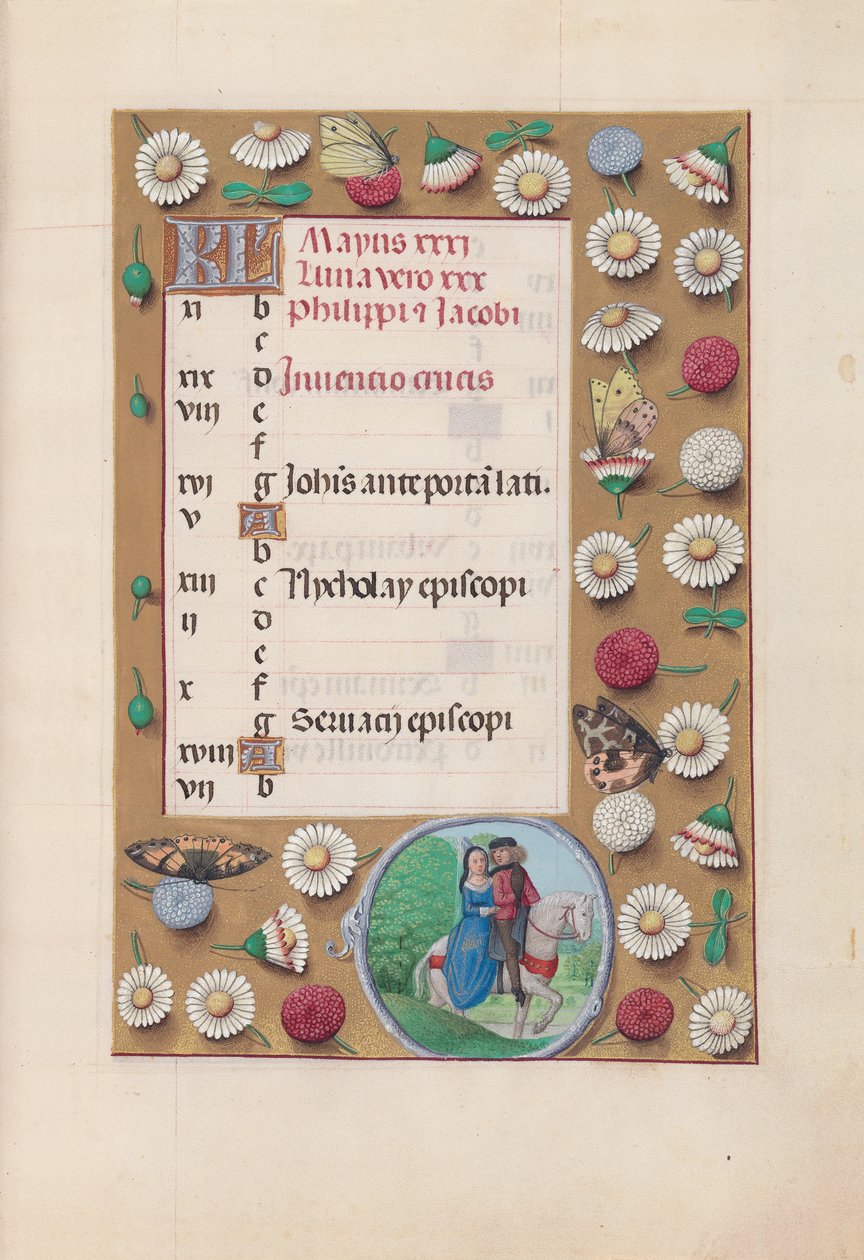 KL Mayus xxxj
Luna vero xxx
xj b Philippi ⁊ Jacobi
c
xix d Inuencio crucis
viij e
f
xvj g Joh̃is ante portã lati.
v A
b
xiij c Nycholay episcopi
ij d
e
x f
g Seruacij episcopi
xviij A
vij b